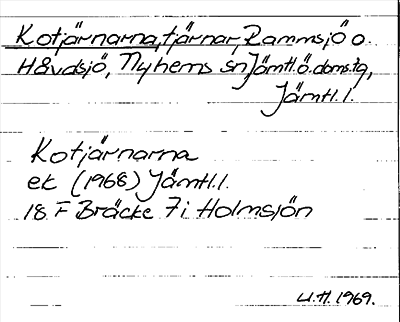 Kotjärnarna, tjärnar, Rammsjö o.
Håvdsjö, Nyhems sn, Jämtl.ö.doms.g,
Jämtl. l.
Kotjärnarna
ek (1968) Jämtl. l.
18 F Bräcke 7 i Holmsjön
U.H. 1969.